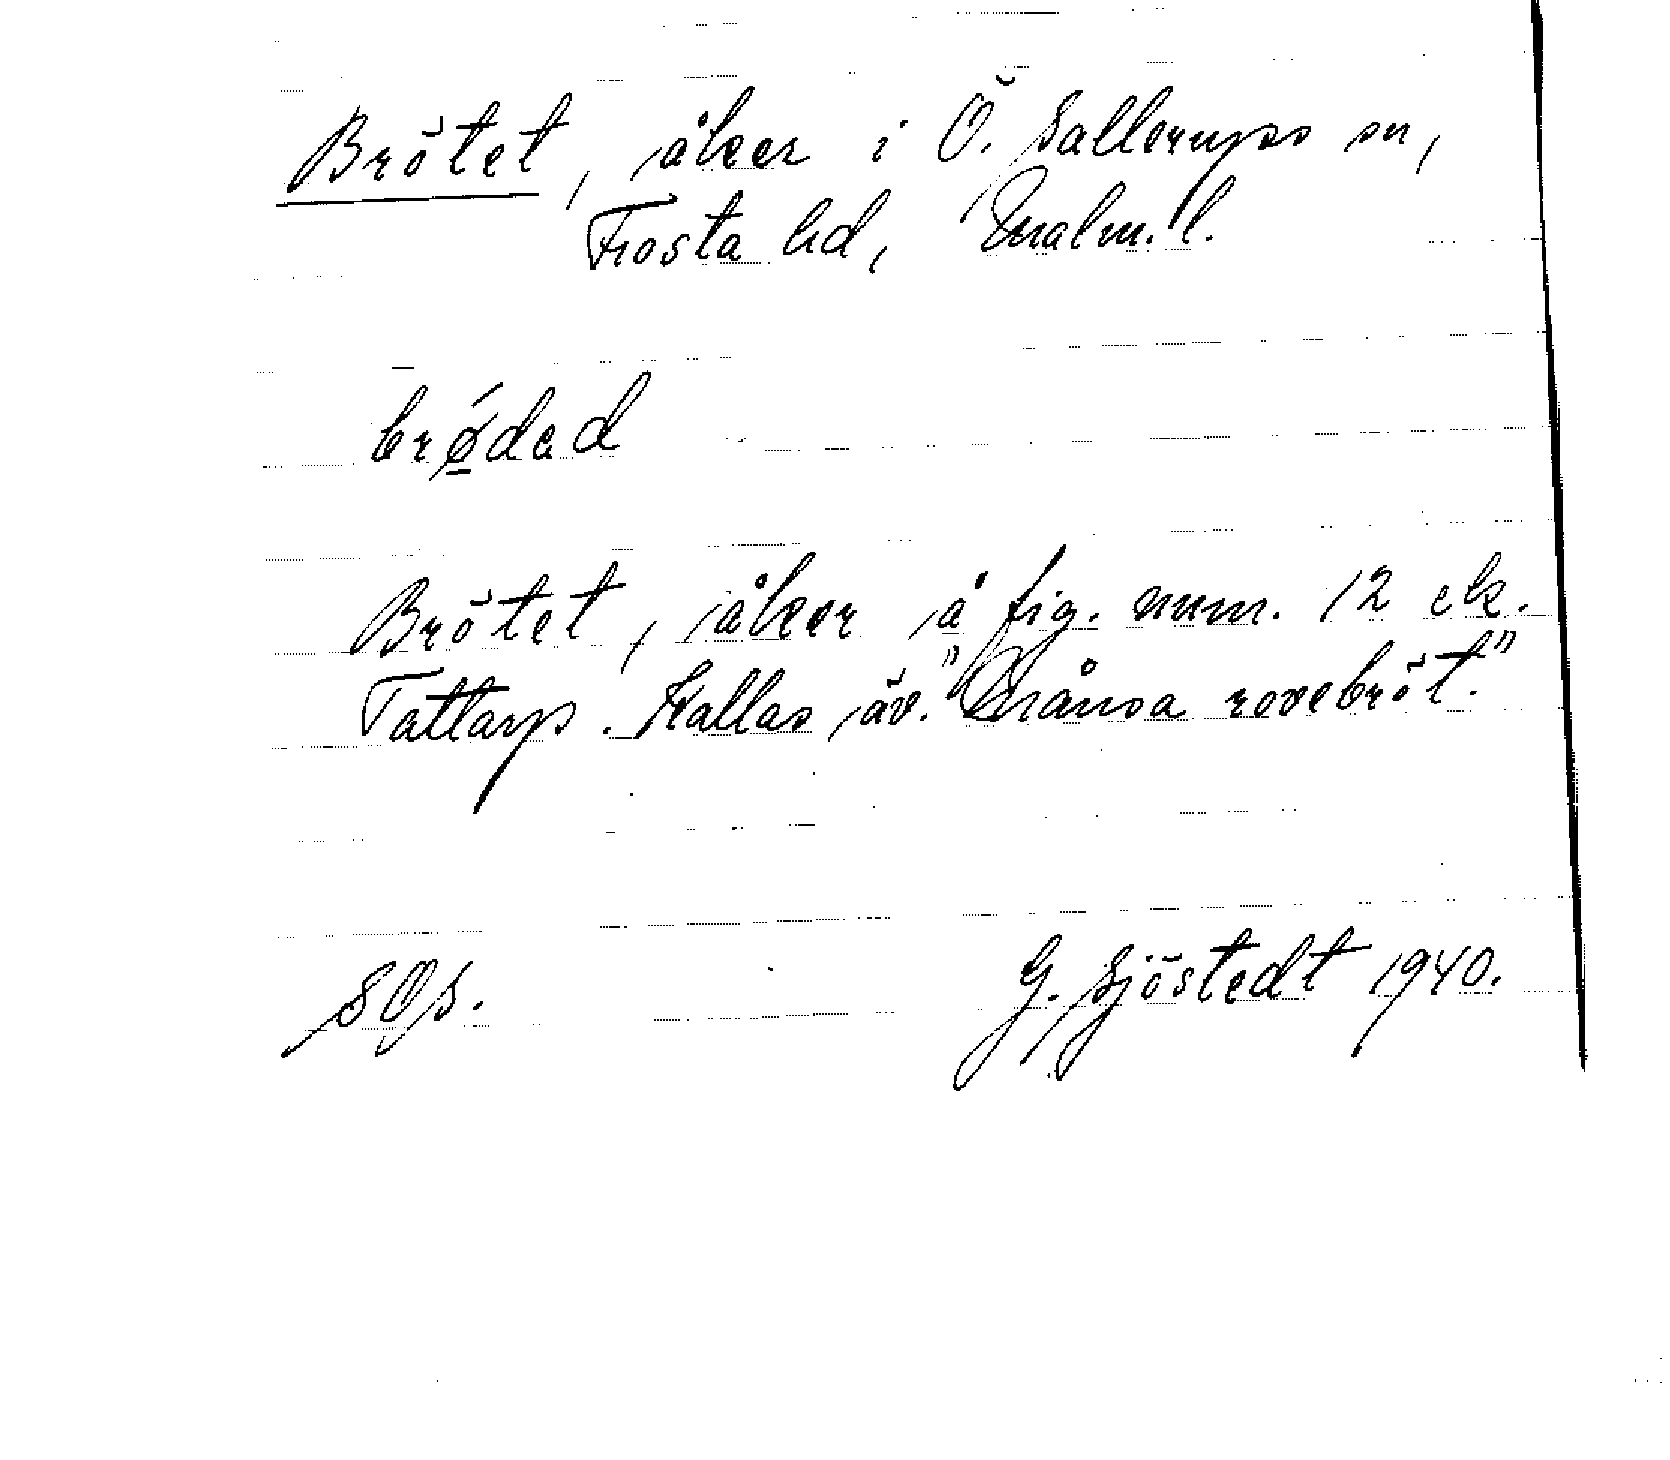 Brötet, åker i Ö. Sallerups sn,
Frosta hd, Malm. l.
brǿ̱dəd
Brötet, åker å fig. num. 12 ek.
Tattarp. Kallas äv. "Månsa rovebröt."
SOs.
G. Sjöstedt 1940.